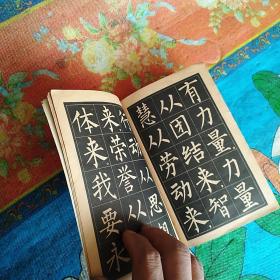 有力量,力量
从团结来,智
慧从劳动来,
行动从思想
来荣誉从
体来我要永